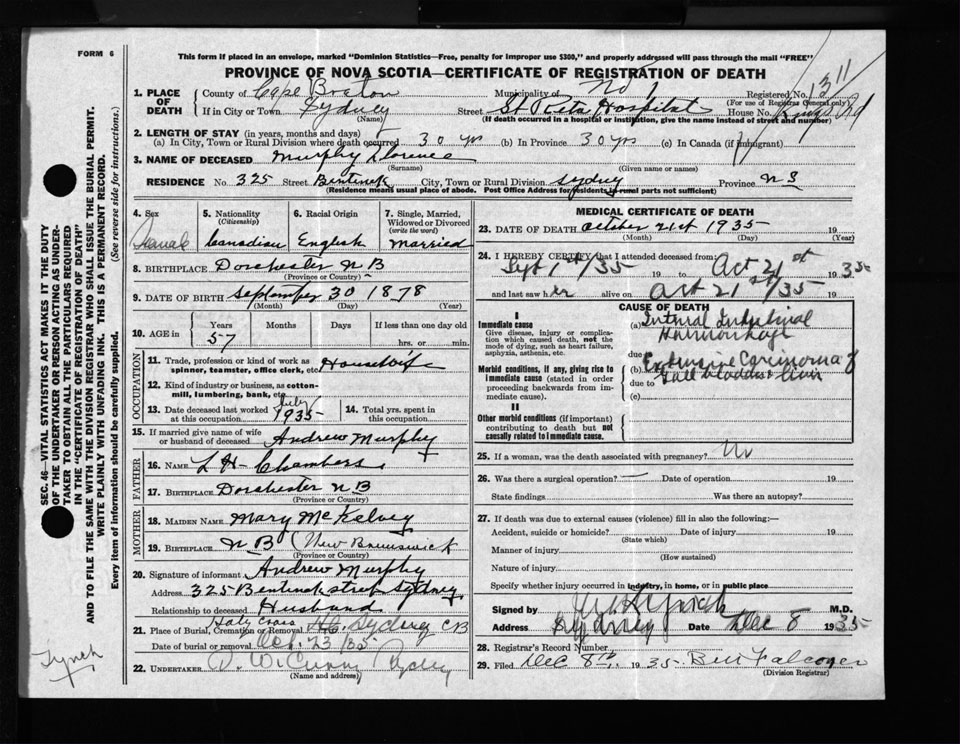 FORM 6
This form if placed in an envelope, marked "Dominion Statistics—Free, penalty for improper use $300," and properly addressed will pass through the mail "FREE"
PROVINCE OF NOVA SCOTIA—CERTIFICATE OF REGISTRATION OF DEATH
1. PLACE OF DEATH
County of Cape Breton Municipality of No 1 Registered No. 311
(For use of Registrar General only)
If in City or Town Sydney Street St Rita Hospital House No. Kings Rd
(Name) (If death occurred in a hospital or institution, give the name instead of street and number)
2. LENGTH OF STAY (in years, months and days)
(a) In City, Town or Rural Division where death occurred 30 yrs (b) In Province 30 yrs (c) In Canada (if immigrant)
3. NAME OF DECEASED Murphy Florence
(Surname) (Given name or names)
RESIDENCE No. 325 Street Bentinck City, Town or Rural Division Sydney Province N S
(Residence means usual place of abode. Post Office Address for residents in rural parts not sufficient)
4. Sex
Female
5. Nationality
(Citizenship)
Canadian
6. Racial Origin
English
7. Single, Married, Widowed or Divorced
(write the word)
Married
8. BIRTHPLACE Dorchester N B
(Province or Country)
9. DATE OF BIRTH September 30 1878
(Month) (Day) (Year)
10. AGE in
Years Months Days If less than one day
57 hrs. or min.
OCCUPATION
11. Trade, profession or kind of work as spinner, teamster, office clerk, etc. Housewife
12. Kind of industry or business, as cotton-mill, lumbering, bank, etc.
13. Date deceased last worked at this occupation July 1935
14. Total yrs. spent in this occupation
15. If married give name of wife or husband of deceased Andrew Murphy
FATHER
16. NAME L H Chambers
17. BIRTHPLACE Dorchester N B
(Province or Country)
MOTHER
18. MAIDEN NAME Mary McKelvey
19. BIRTHPLACE N B (New Brunswick
(Province or Country)
20. Signature of informant Andrew Murphy
Address 325 Bentinck street Sydney
Relationship to deceased Husband
21. Place of Burial, Cremation or Removal Holy Cross Sydney CB
Date of burial or removal Oct. 23/35
22. UNDERTAKER
(Name and address)
MEDICAL CERTIFICATE OF DEATH
23. DATE OF DEATH October 21st 1935 19
(Month) (Day) (Year)
24. I HEREBY CERTIFY that I attended deceased from:
Sept 1st/35 19 to Oct 21st 1935
and last saw her alive on Oct 21st/35 19
CAUSE OF DEATH
I
Immediate cause
Give disease, injury or complication which caused death, not the mode of dying, such as heart failure, asphyxia, asthenia, etc.
(a) Internal Intestinal Haemorrhage
due to
Morbid conditions, if any, giving rise to immediate cause (stated in order proceeding backwards from immediate cause).
(b) Extensive Carcinoma of Gall bladder liver
due to
(c)
II
Other morbid conditions (if important) contributing to death but not causally related to immediate cause.
25. If a woman, was the death associated with pregnancy? No
26. Was there a surgical operation? — Date of operation 19
State findings Was there an autopsy?
27. If death was due to external causes (violence) fill in also the following:—
Accident, suicide or homicide? Date of injury 19
(State which)
Manner of injury
(How sustained)
Nature of injury
Specify whether injury occurred in industry, in home, or in public place
Signed by Lynch M.D.
Address Sydney Date Dec 8 1935
28. Registrar's Record Number
29. Filed Dec 8th, 1935. Bill Falconer
(Division Registrar)
SEC. 46—VITAL STATISTICS ACT MAKES IT THE DUTY OF THE UNDERTAKER OR PERSON ACTING AS UNDERTAKER TO OBTAIN ALL THE PARTICULARS REQUIRED IN THE "CERTIFICATE OF REGISTRATION OF DEATH" AND TO FILE THE SAME WITH THE DIVISION REGISTRAR WHO SHALL ISSUE THE BURIAL PERMIT.
WRITE PLAINLY WITH UNFADING INK. THIS IS A PERMANENT RECORD.
Every item of information should be carefully supplied. (See reverse side for instructions.)
Lynch